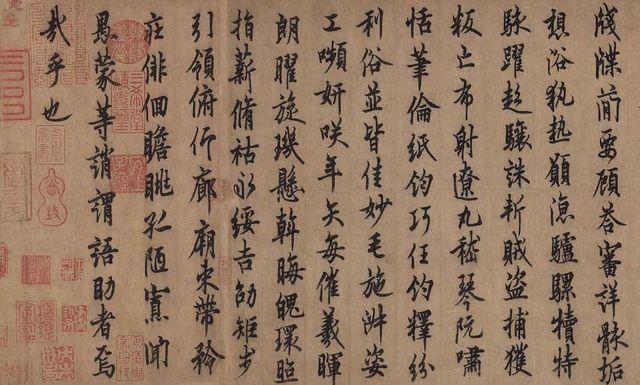 牋牒簡要顧答審詳骸垢
想浴執熱願涼驢騾犢特
駭躍超驤誅斬賊盜捕獲
叛亡布射遼丸嵇琴阮嘯
恬筆倫紙鈞巧任釣釋紛
利俗並皆佳妙毛施淑姿
工嚬妍咲年矢每催羲暉
朗曜旋璣懸斡晦魄環照
指薪脩祜永綏吉劭矩步
引領俯仰廊廟束帶矜
莊俳佪瞻眺孤陋寡聞
愚蒙等誚謂語助者焉
哉乎也